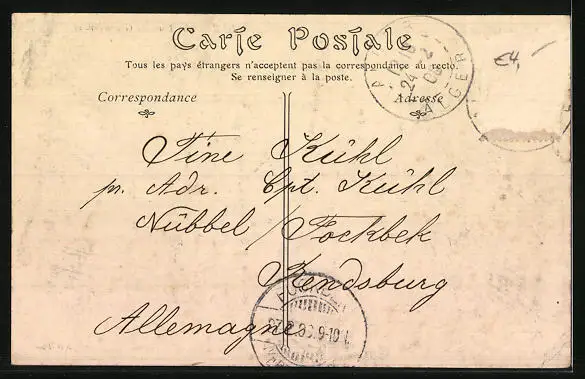 Carte Postale
Tous les pays étrangers n'acceptent pas la correspondance au recto.
Se renseigner à la poste.
Correspondance
Adresse
ALGER
24
E4,-
Tine Kühl
pr. Adr. Cpt. Kühl
Nübbel / Fockbek
Rendsburg
Allemagne
9-10